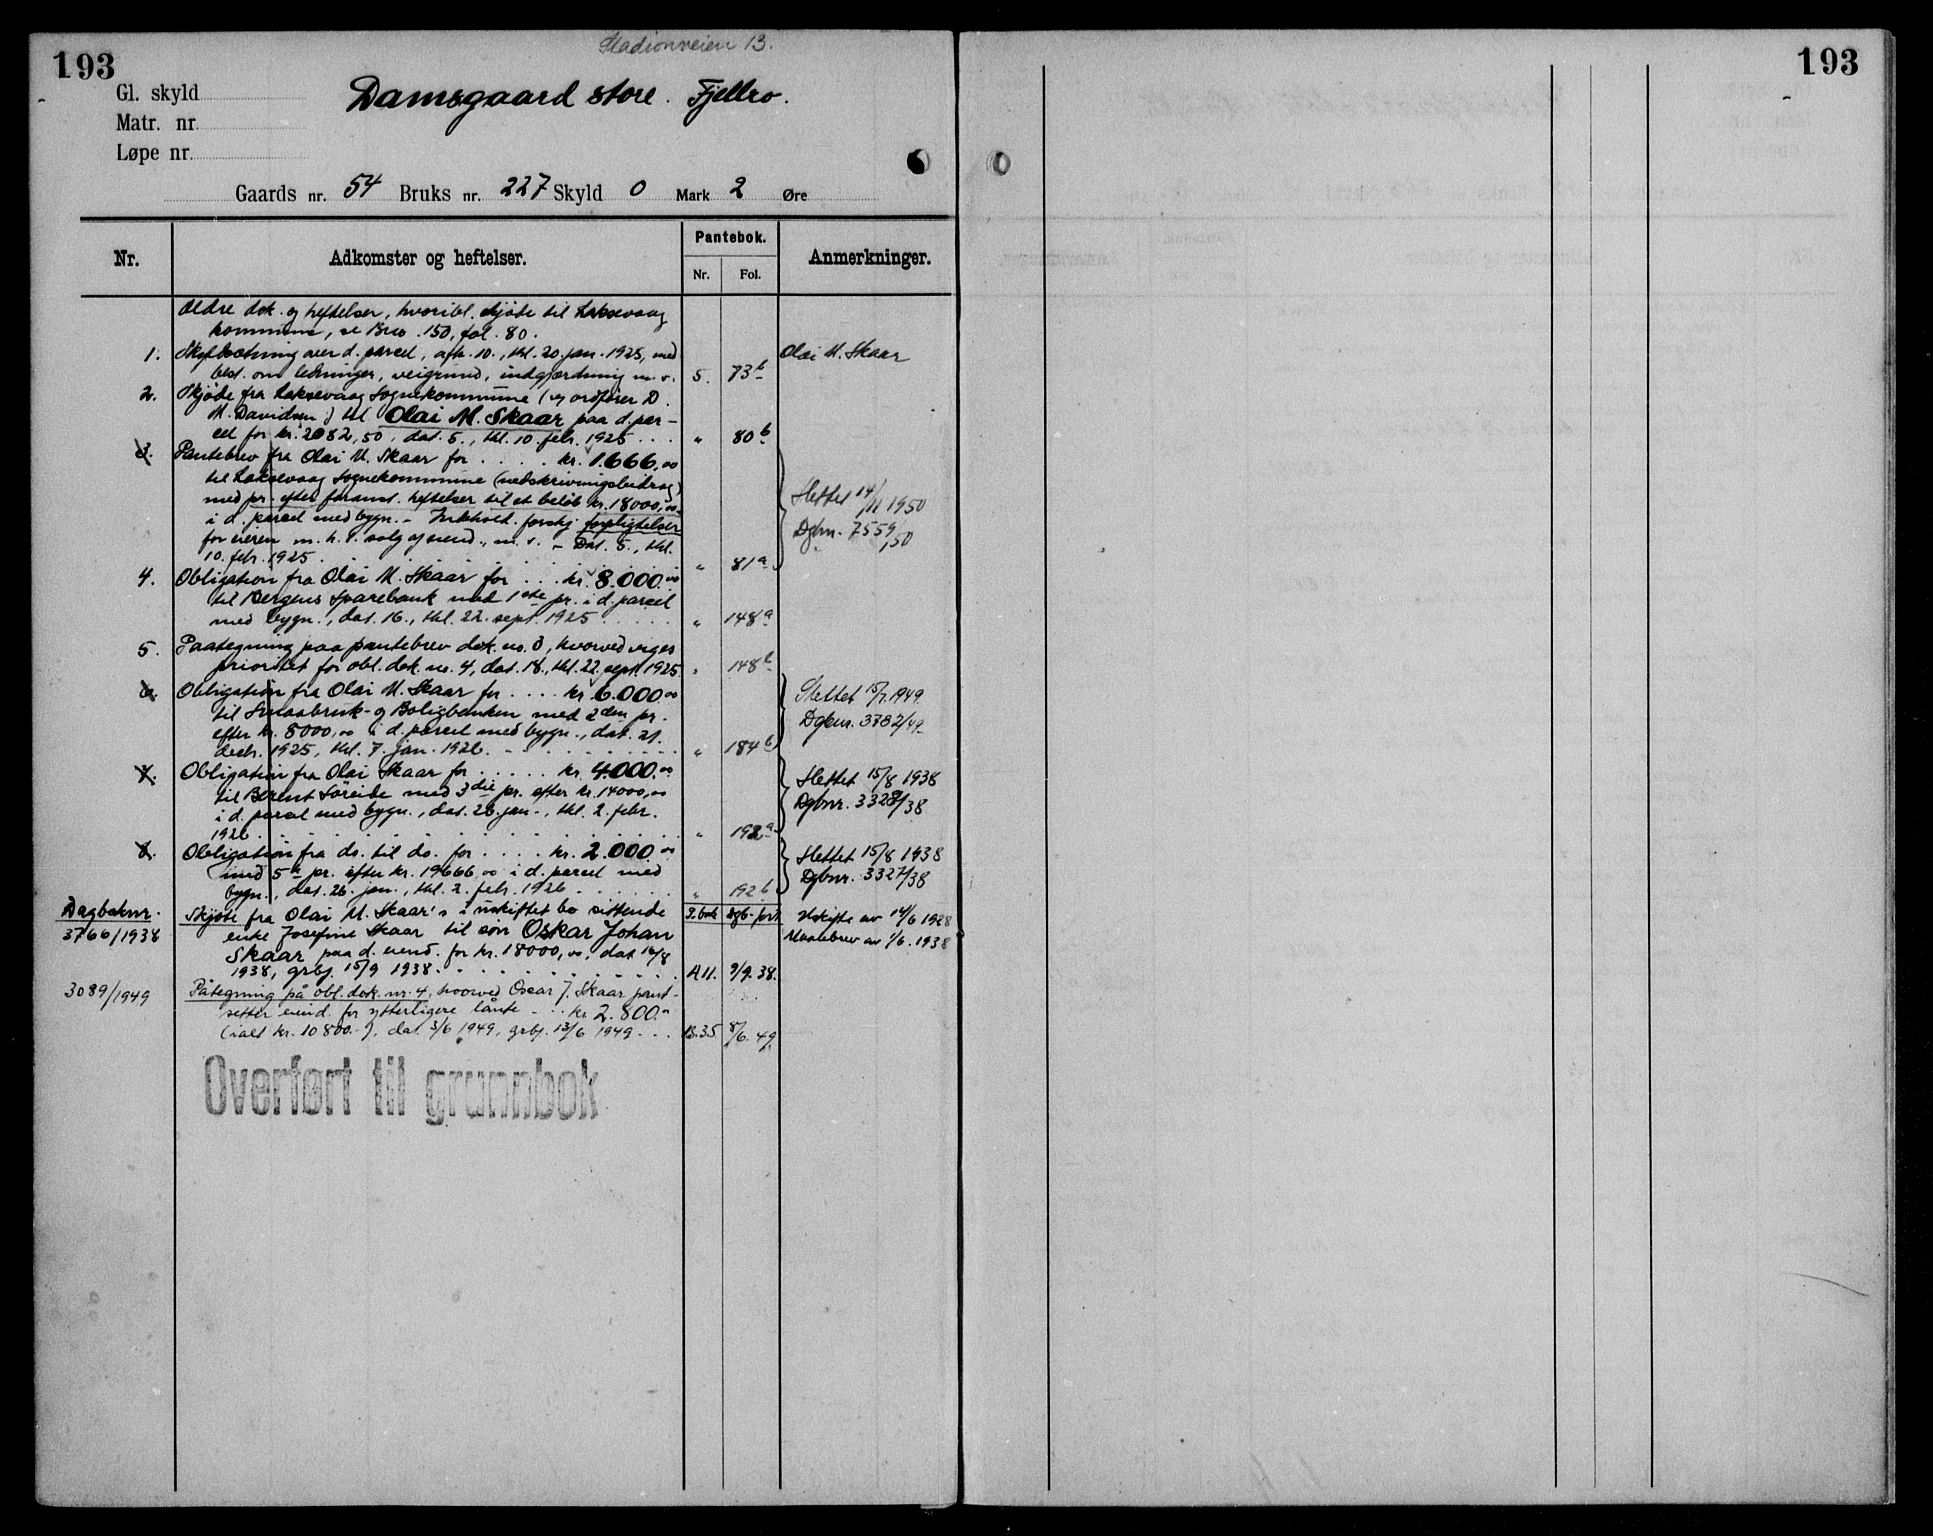 193
193
Stadionveien 13.
Gl. skyld
Damsgaard store. Fjellro.
Matr. nr.
Løpe nr.
Gaards nr. 54 Bruks nr. 227 Skyld 0 Mark 2 Øre
Nr. Adkomster og heftelser. Pantebok. Anmerkninger.
Nr. Fol.
Ældre dok. og heftelser, hvoribl. skjøte til Laksevaag
kommune, se Bno. 150, fol. 80.
1. Skyldsætning over d. parcel, afh. 10., thl. 20. jan. 1925, med Olai M. Skaar
best. om ledninger, veigrund, indgjærdning m. v. 5. 73b
2. Skjøde fra Laksevaag Sognekommune (v/ ordfører D.
M. Davidsen) til Olai M. Skaar paa d. par-
cel for kr. 2082,50, dat. 5., thl. 10. febr. 1925 . . . " 80b
3. Pantebrev fra Olai M. Skaar for . . . . kr. 1.666,00
til Laksevaag Sognekommune (nedskrivningsbidrag)
med pr. efter foranst. heftelser til et beløb kr. 18000,00
i d. parcel med bygn. - Indehold. forskj. forpligtelser
for eieren m. h. t. salg af eiend., m. v. - Dat. 5., thl.
10. febr. 1925 . . . " 81a
Slettet 14/11 1950
Dgbnr. 7559/50
4. Obligation fra Olai M. Skaar for . . . kr. 8.000,00
til Bergens Sparebank med 1ste pr. i d. parcel
med bygn., dat. 16., thl. 22. sept. 1925 . . . . . " 148a
5. Paategning paa pantebrev dok. no. 3, hvorved viges
prioritet for obl. dok. no. 4, dat. 18., thl. 22. sept. 1925 " 148b
6. Obligation fra Olai M. Skaar for . . . . kr. 6.000,00
til Smaabruk- og Boligbanken med 2den pr.
efter kr. 8000,00 i d. parcel med bygn., dat. 21.
decbr. 1925, thl. 7. jan. 1926. . . . " 184b
Slettet 15/7 1949
Dgbnr. 3782/49
7. Obligation fra Olai Skaar for . . . . . kr. 4.000,00
til Berent Søreide med 3die pr. efter kr. 14000,00
i d. parcel med bygn., dat. 26. jan., thl. 2. febr.
1926 . . . " 192a
Slettet 15/8 1938
Dgbnr. 3328/38
8. Obligation fra do. til do. for . . . . kr. 2.000,00
med 5te pr. efter kr. 19666,00 i d. parcel med
bygn., dat. 26. jan., thl. 2. febr. 1926 . . . " 192b
Slettet 15/8 1938
Dgbnr. 3327/38
Dagboknr. Skjøte fra Olai M. Skaar's i uskiftet bo sittende P.bok Dgb-ført Uskifte av 14/6 1928
3766/1938 enke Josefine Skaar til søn Oskar Johan Maalebrev av 1/6. 1938
Skaar paa d. eiend. for kr. 18000,00, dat 16/8
1938, grbj. 15/9 1938 . . . A 11. 9/9. 38.
3089/1949 Påtegning på obl. dok. nr. 4, hvorved Oscar J. Skaar pant-
setter eiend. for ytterligere lånte . . . kr. 2.800,00
(ialt kr. 10800.-), dat. 3/6 1949, grbj. 13/6 1949 . . . B. 35 8/6. 49
Overført til grunnbok